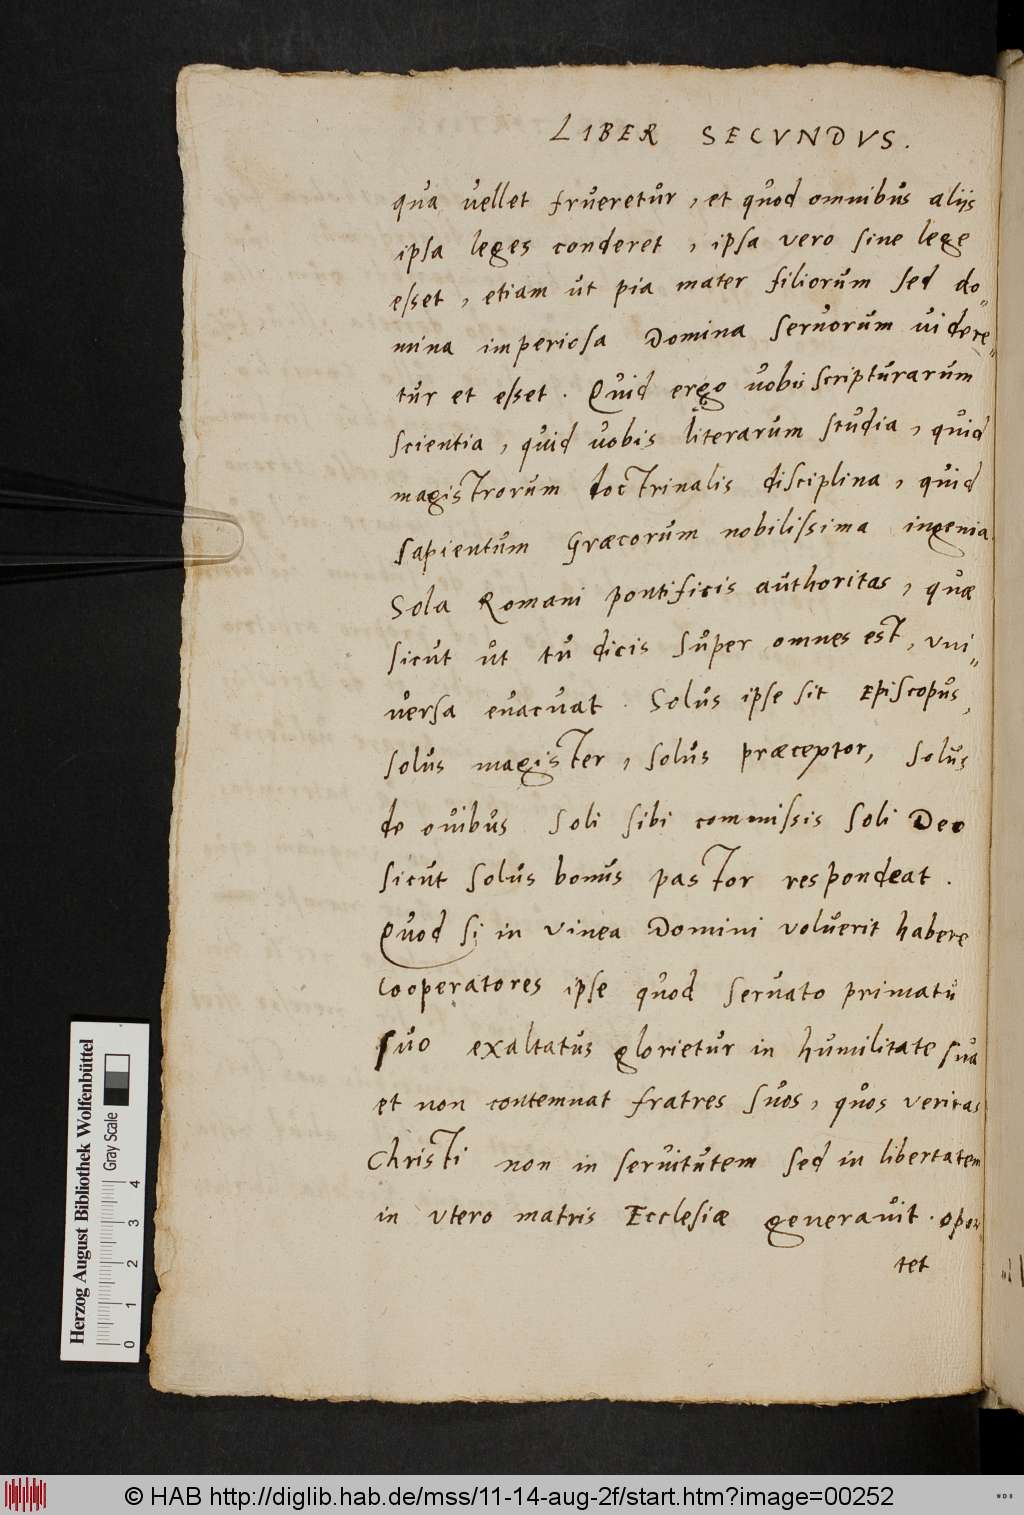 LIBER SECVNDVS.
qua vellet frueretur, et quod omnibus aliis
ipsa leges conderet, ipsa vero sine lege
esset, etiam ut pia mater filiorum sed do"
mina imperiosa Domina seruorum uidere"
tur et esset. Quid ergo uobis scripturarum
scientia, quid uobis literarum studia, quid
magistrorum doctrinalis disciplina, quid
sapientum Græcorum nobilissima ingenia.
Sola Romani pontificis authoritas, quæ
sicut ut tu dicis super omnes est, vni"
uersa euacuat. Solus ipse sit Episcopus,
solus magister, solus præceptor, solus
de ouibus soli sibi commissis soli Deo
sicut solus bonus pastor respondeat.
Quod si in vinea Domini voluerit habere
cooperatores ipse quod seruato primatu
suo exaltatus glorietur in humilitate sua
et non contemnat fratres suos, quos veritas
Christi non in seruitutem sed in libertatem
in vtero matris Ecclesiæ generauit. opor"
tet
Herzog August Bibliothek Wolfenbüttel
Gray Scale
0 1 2 3 4
© HAB http://diglib.hab.de/mss/11-14-aug-2f/start.htm?image=00252